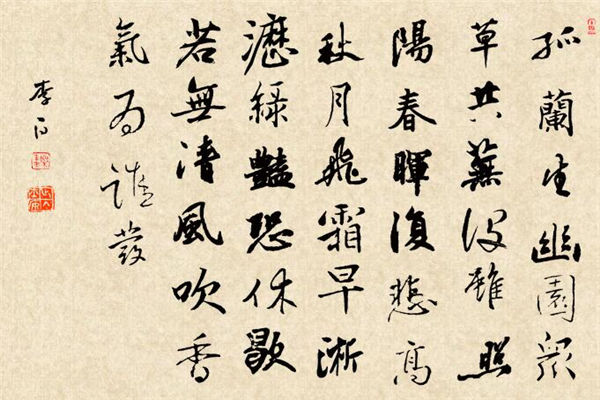 孤蘭生幽園眾
草共蕪沒雖照
陽春暉復悲高
秋月飛霜早淅
瀝綠豔恐休歇
若無清風吹香
氣為誰發
李白